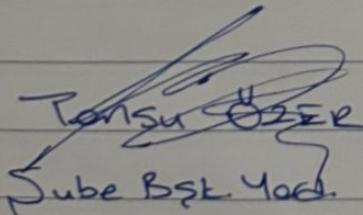 Tansu ÖZER
Şube Bşk. Yard.